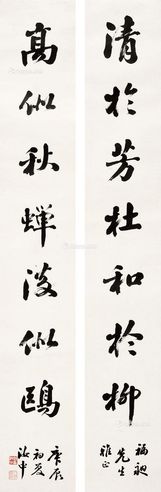 清於芳杜和於柳
福昶
先生
雅正
高似秋蝉淡似鷗
庚辰
初夏
汝申